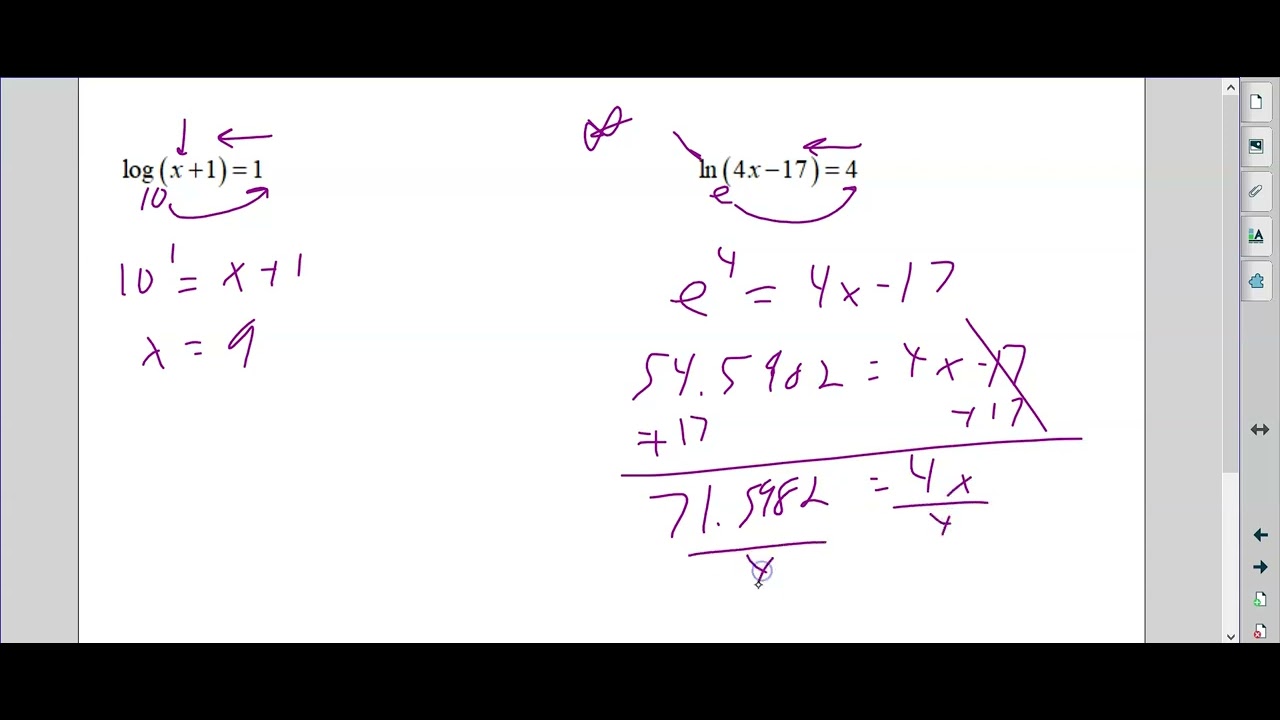 log(x+1)=1
10
10¹ = x+1
x = 9
ln(4x−17)=4
e
e⁴ = 4x-17
54.5982 = 4x-17
+17 +17
71.5982 = 4x
4 4